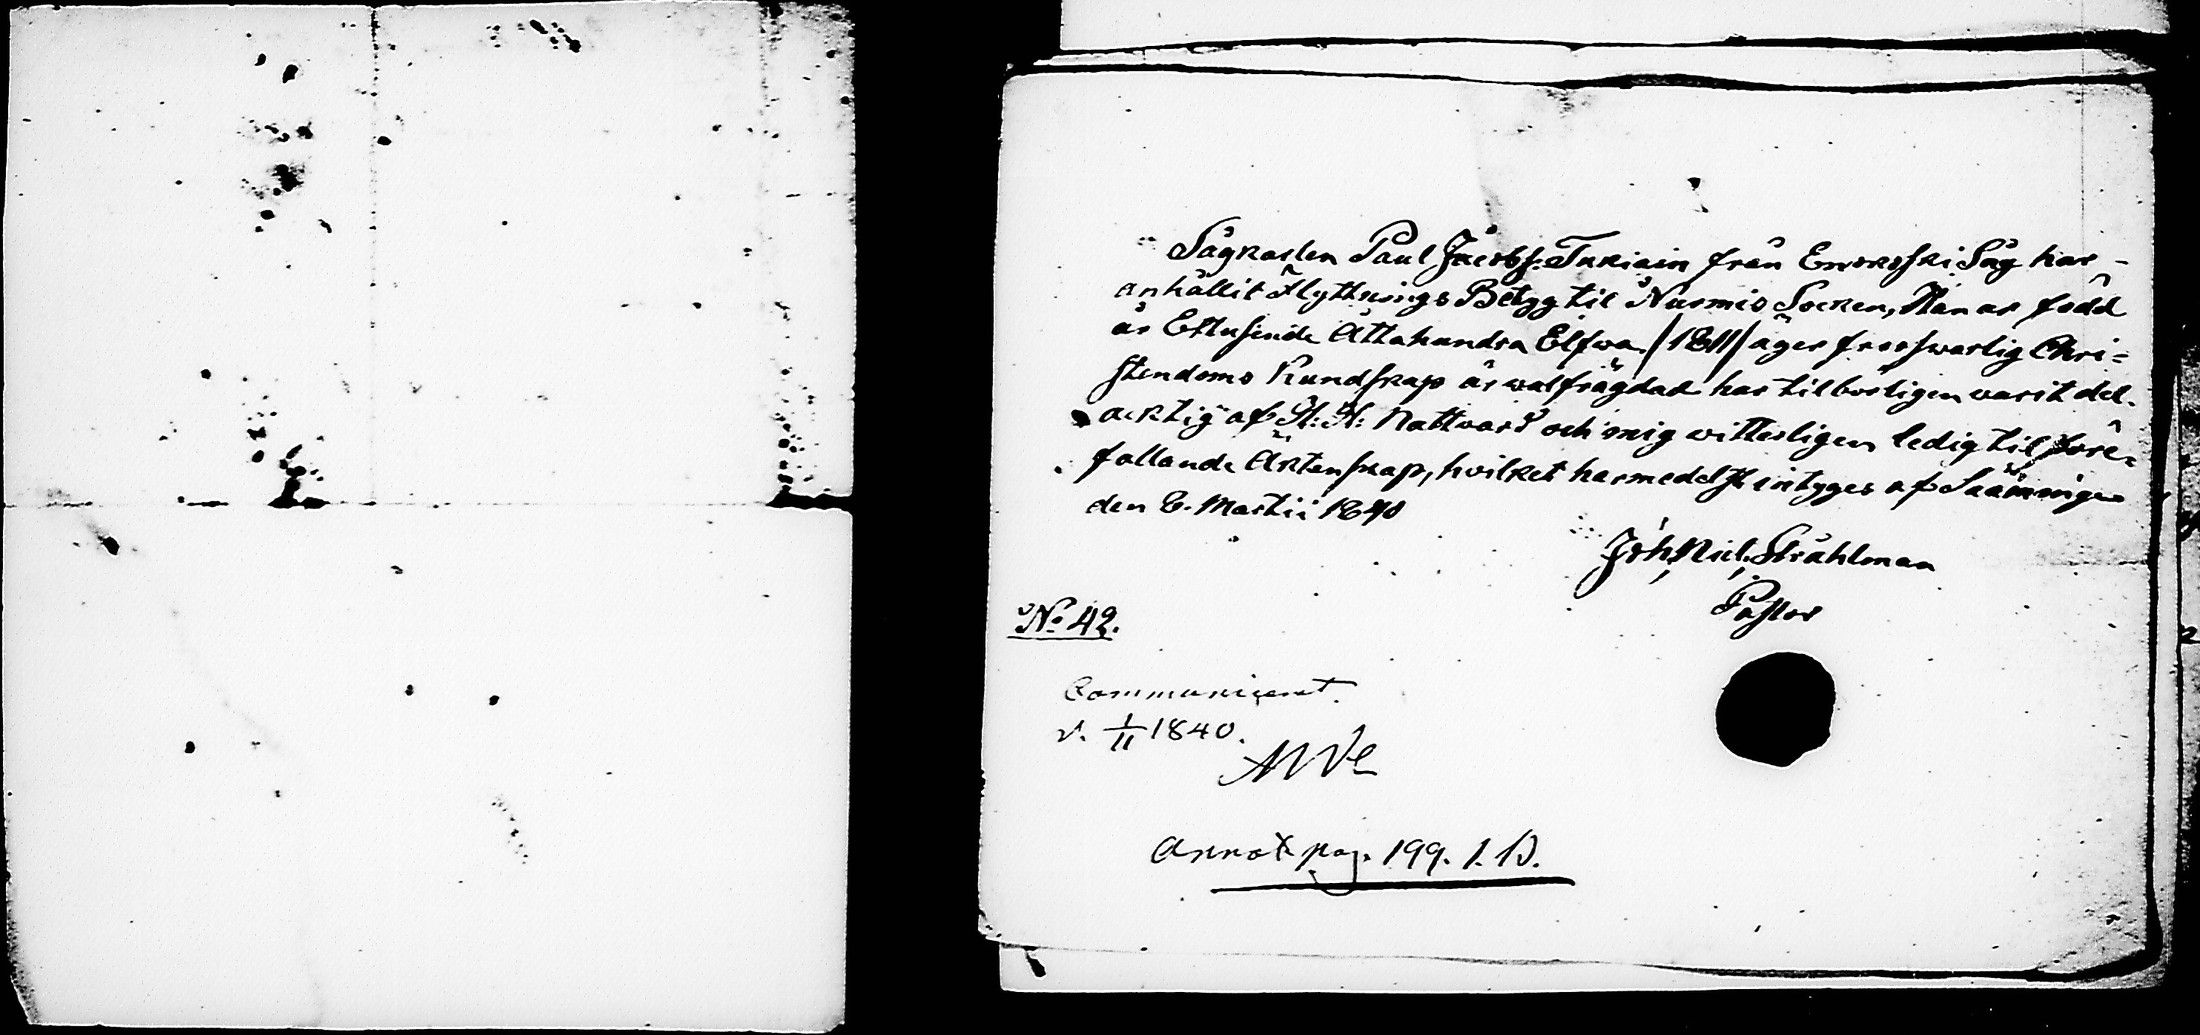 Sågkarlen Paul Jacobs: Turiain från Enokoski Såg har
anhållit Flyttnings Betyg til Nurmis Socken, Han är född
år Ettusende Åttahundra Elfwa /1811/ äger försswarlig Chri=
stendoms Kundskap är walfrägdad har tilbörligen warit del-
acktig af H: H: Nattward och mig witterligen ledig til före-
fallande Äktenskap, hvilket härmedelst intyges af Sääminge
den 8. Martii 1840
Joh: Nicl: Stråhlman
Pastor
No 42.
Communicerat.
d. 1/11 1840.
Annot. pag. 199. 1. D.